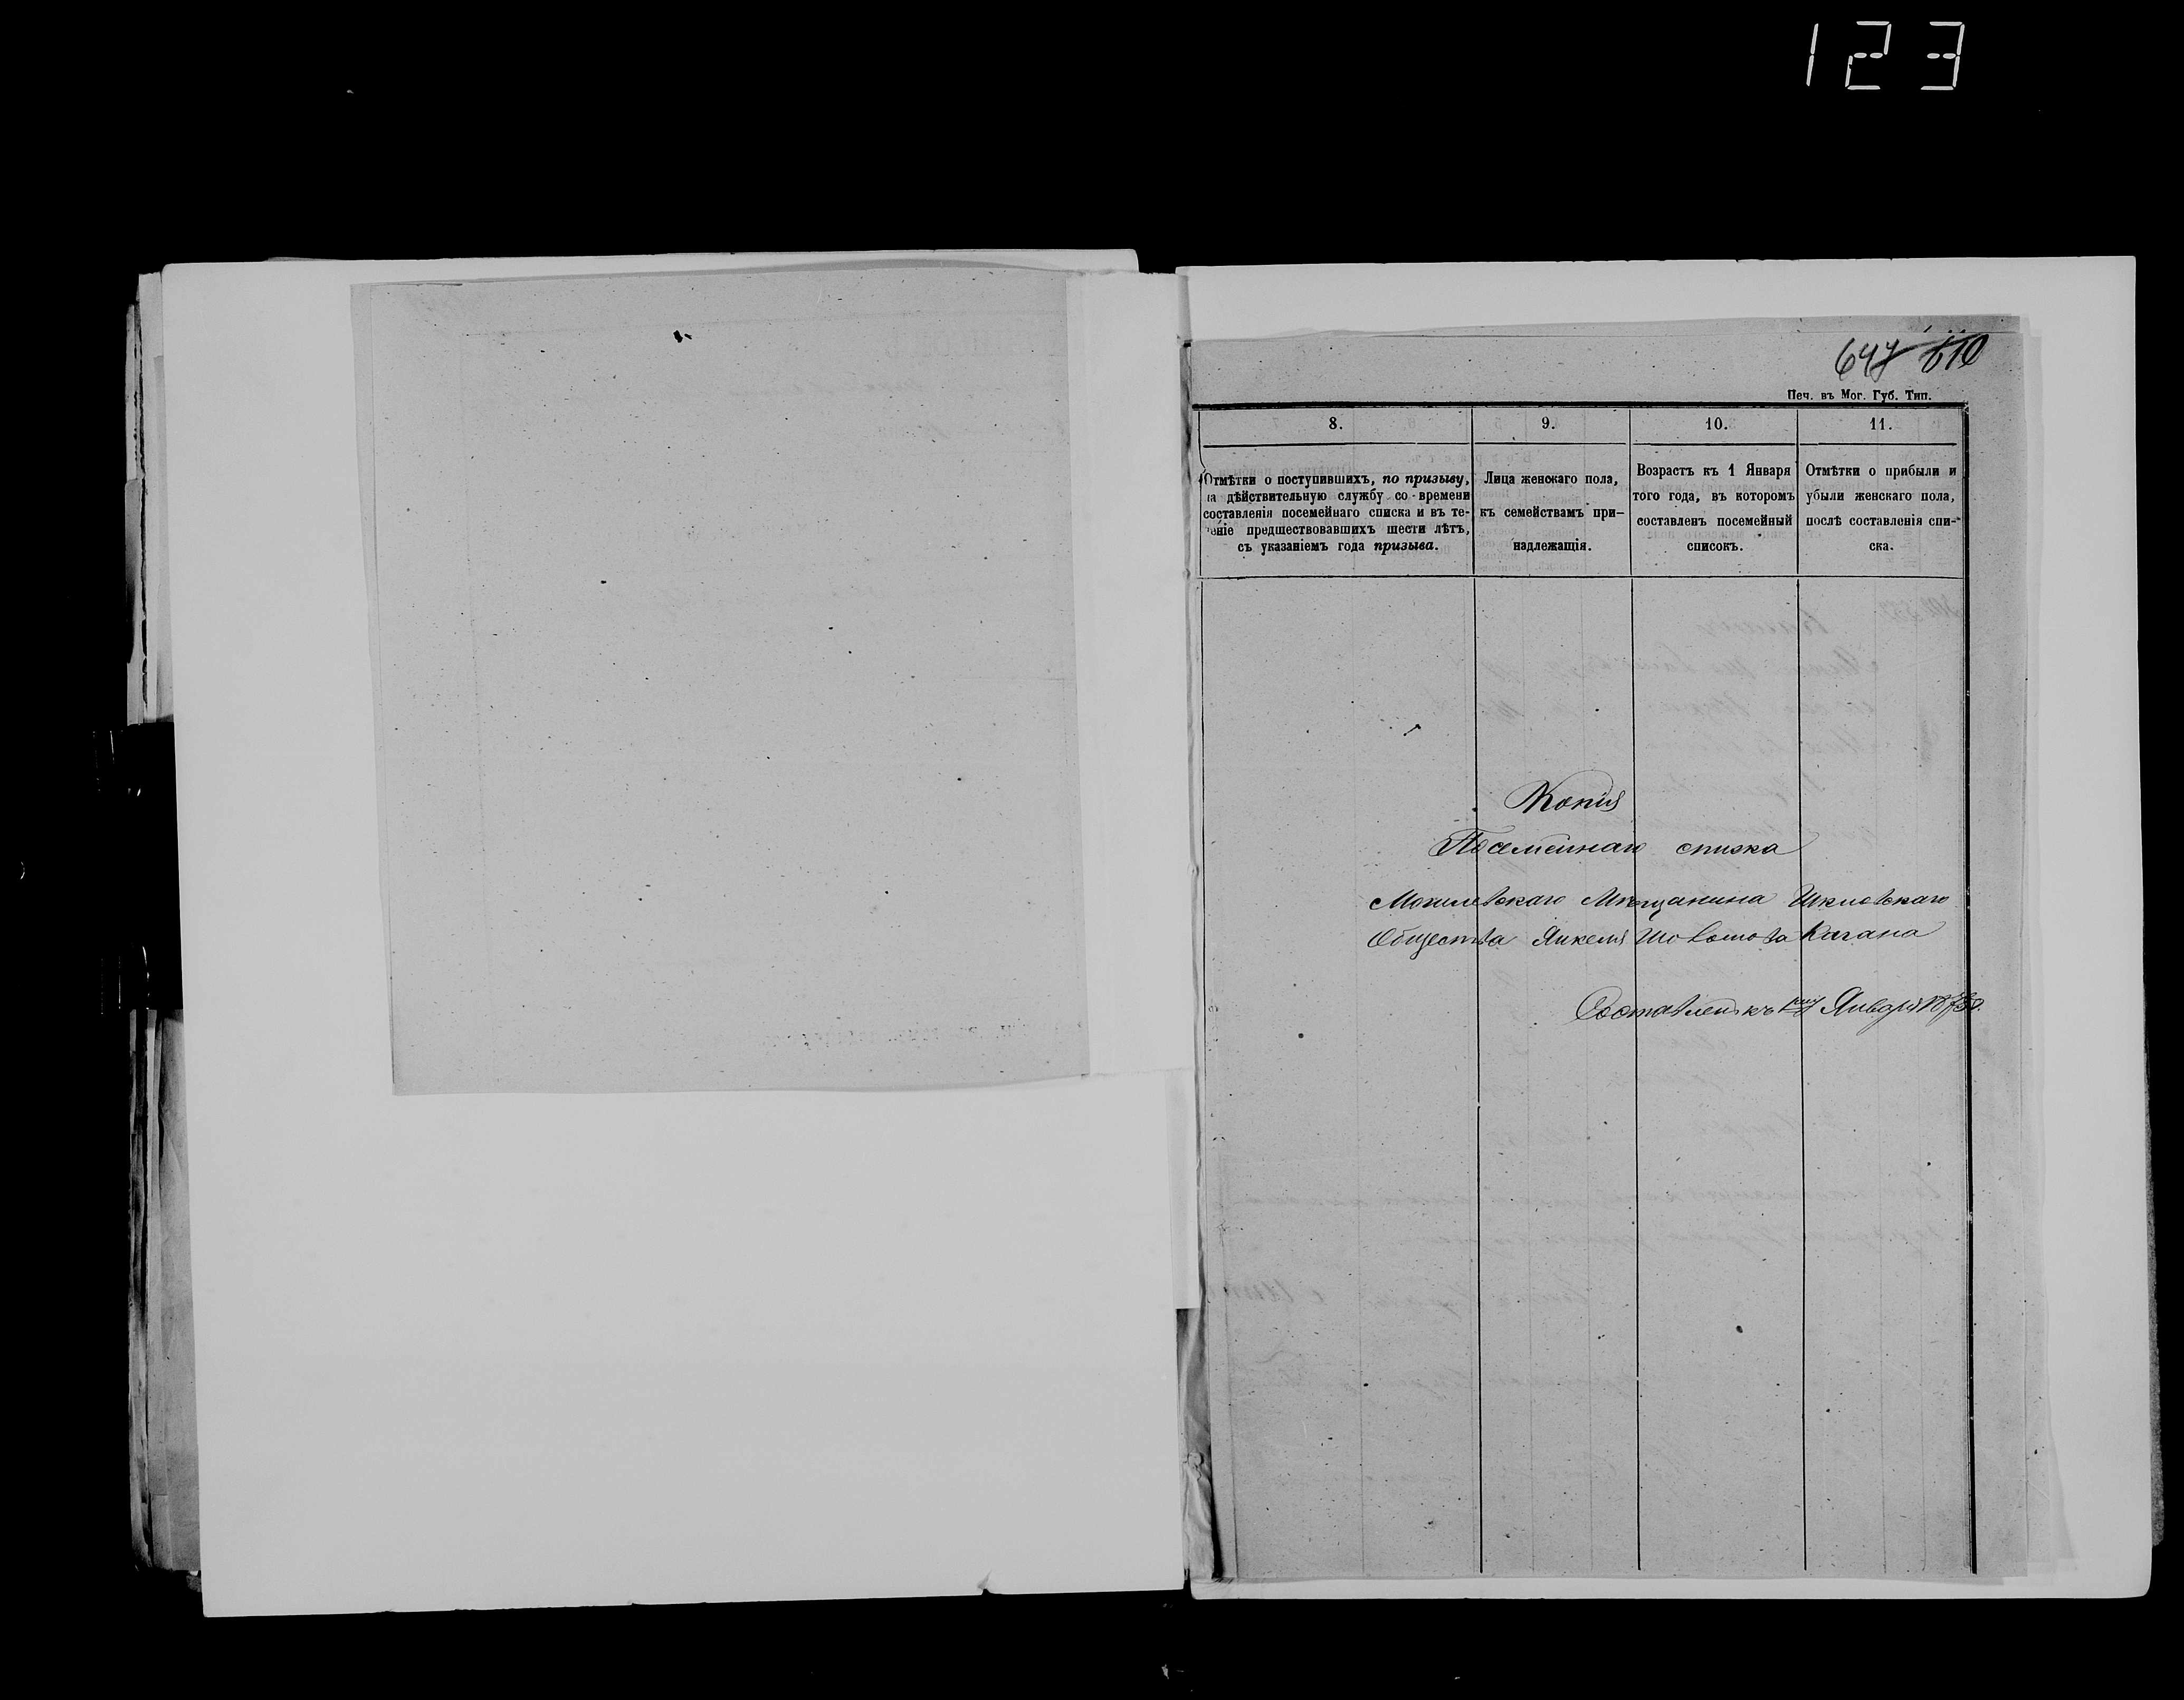 123
647 610
Печ. въ Мог. Губ. Тип.
8.
Отмѣтки о поступившихъ, по призыву,
на дѣйствительную службу со времени
составленія посемейнаго списка и въ те-
ченіе предшествовавшихъ шести лѣтъ,
съ указаніемъ года призыва.
9.
Лица женскаго пола,
къ семействамъ при-
надлежащія.
10.
Возрастъ къ 1 Января
того года, въ которомъ
составленъ посемейный
списокъ.
11.
Отмѣтки о прибыли и
убыли женскаго пола,
послѣ составленія спи-
ска.
Копія
Посемейнаго списка
Могилевскаго Мѣщанина Шкловскаго
Общества Янкеля Шоломова Кагана
Составленъ къ Января